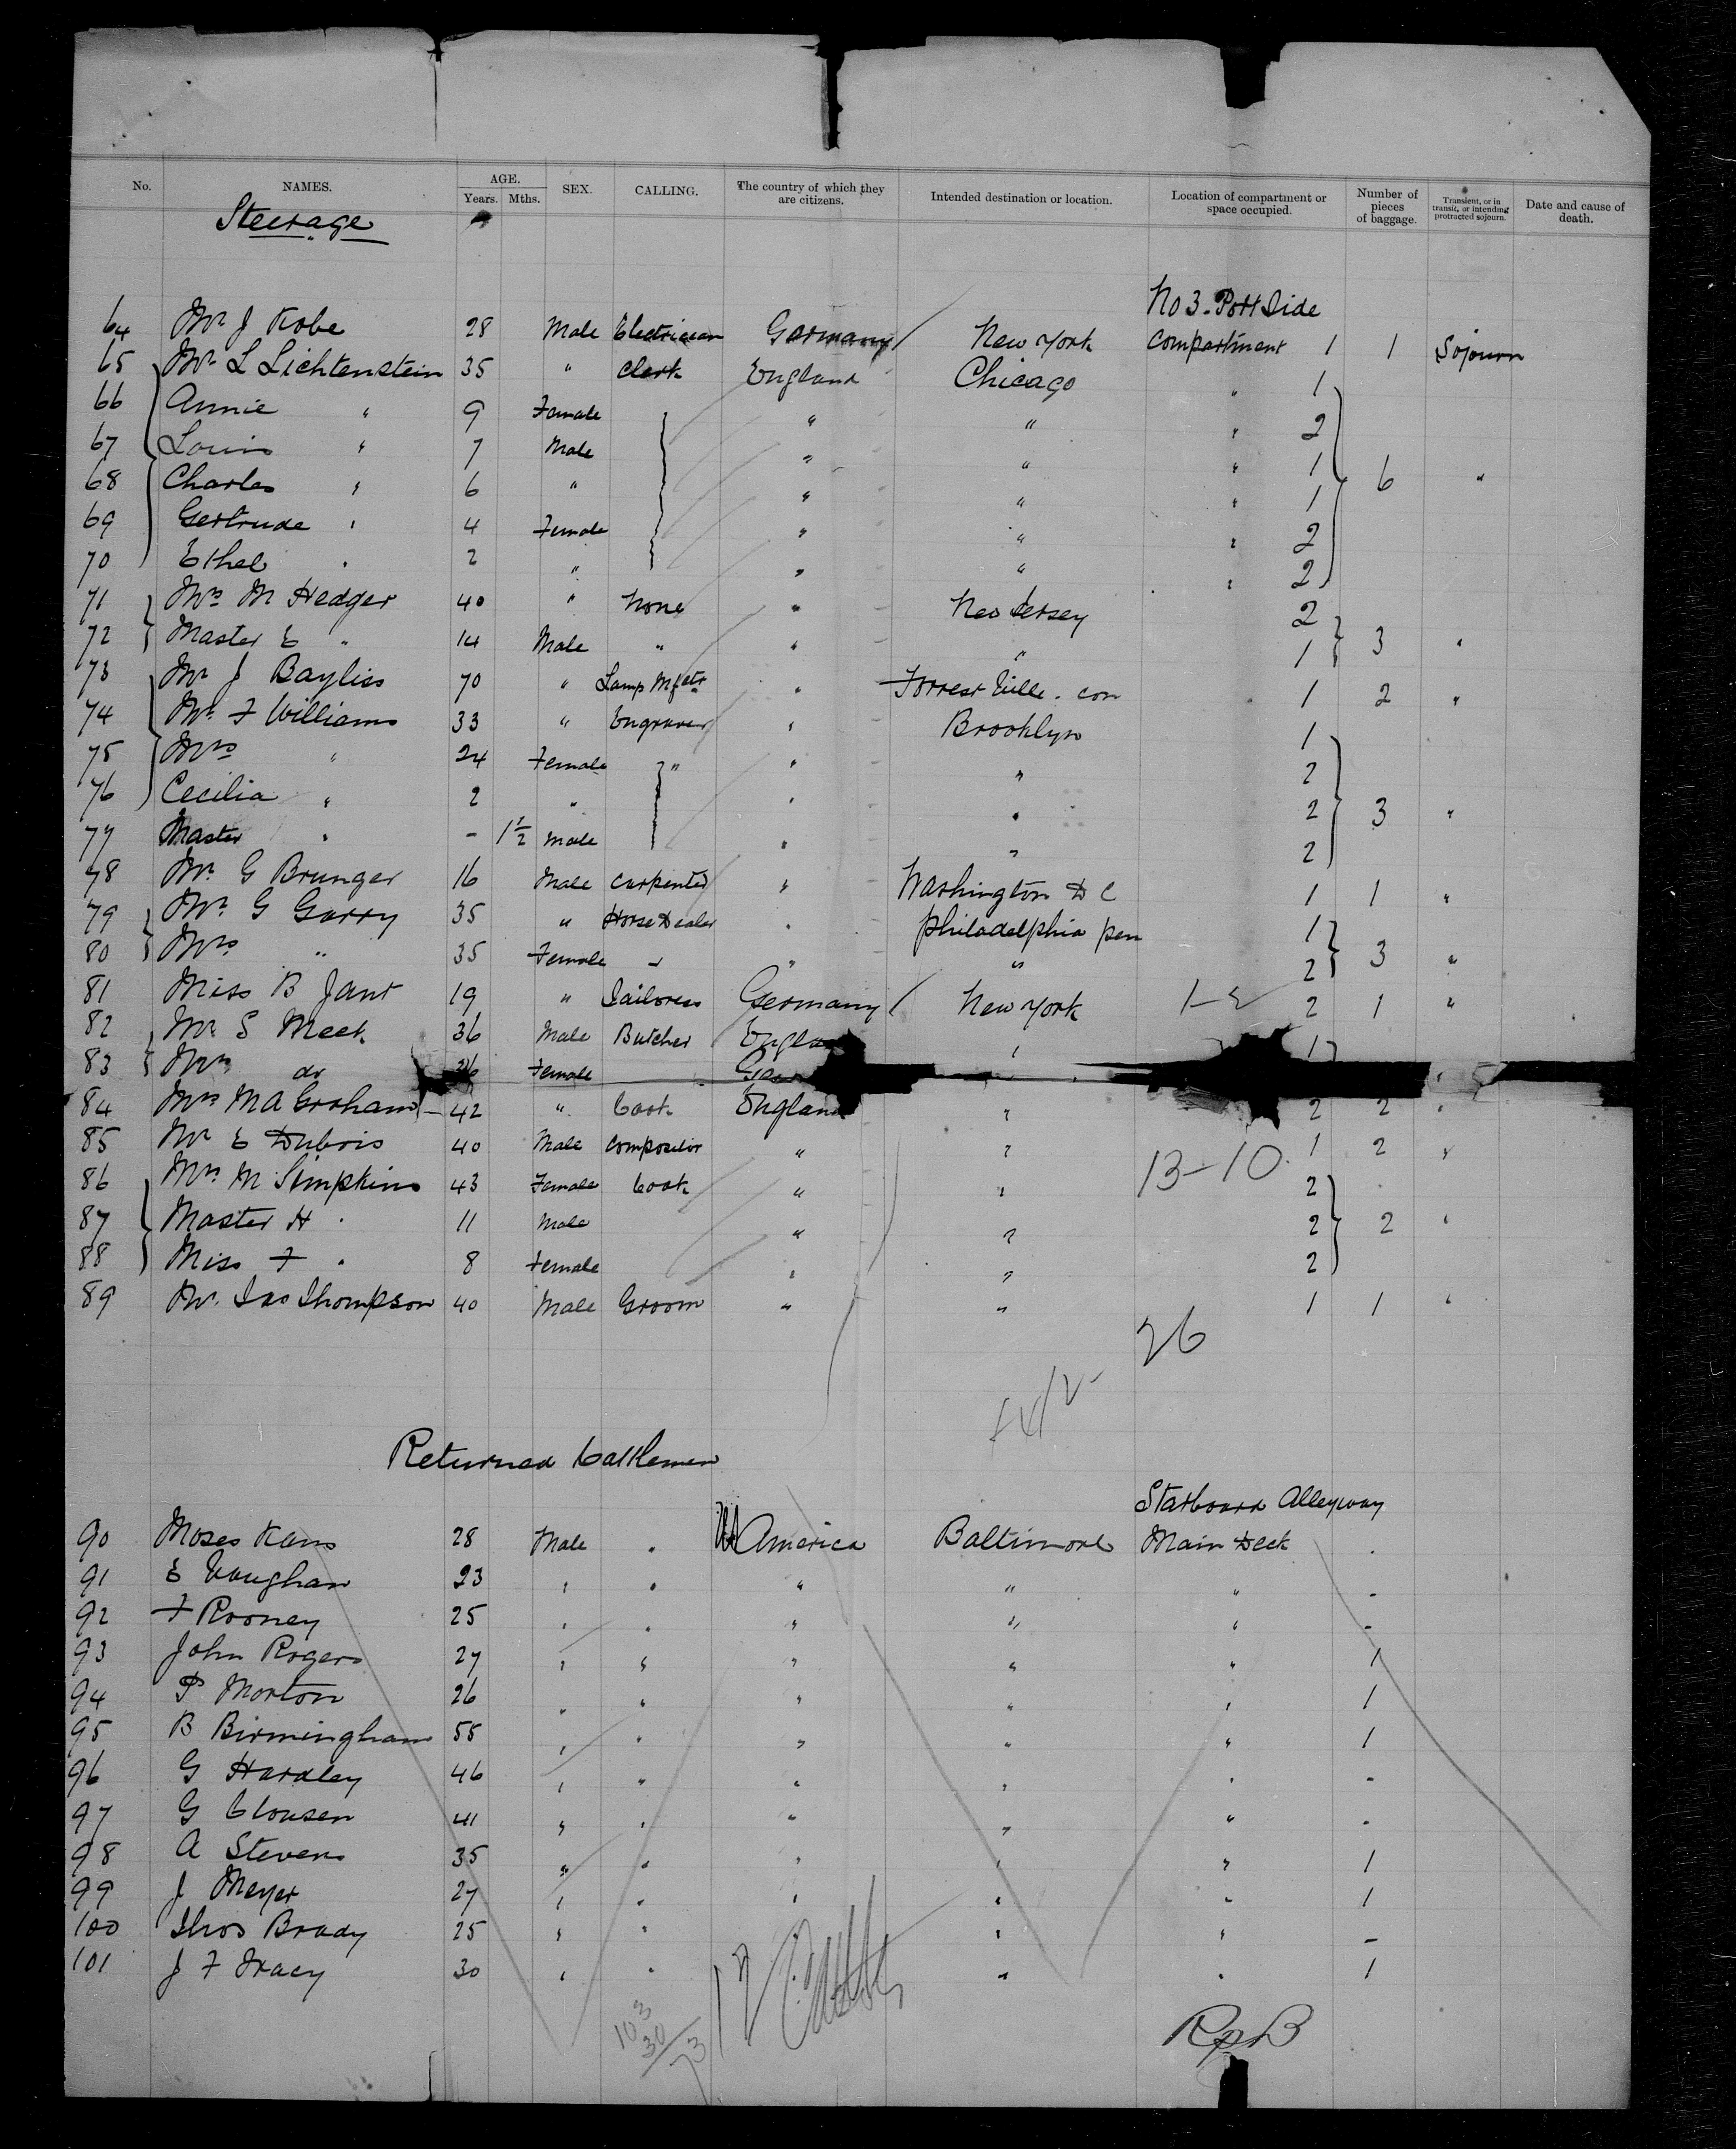 No. NAMES. AGE. Years. Mths. SEX. CALLING. The country of which they are citizens. Intended destination or location. Location of compartment or space occupied. Number of pieces of baggage. Transient, or in transit, or intending protracted sojourn. Date and cause of death.
Steerage
No 3 - Port Side
64 Mr J Kobe 28 Male Electrician Germany New York Compartment 1 1 Sojourn
65 Mr L Lichtenstein 35 " Clerk England Chicago " 1
66 Annie " 9 Female " " " 2
67 Louis " 7 Male " " " 1
68 Charles " 6 " " " " 1 6 "
69 Gertrude " 4 Female " " " 2
70 Ethel " 2 " " " " 2
71 Mrs M Hedger 40 " None " New Jersey 2
72 Master E " 14 Male " " " 1 3 "
73 Mr J Bayliss 70 " Lamp Mfctr " Forrest Ville - con 1 2 "
74 Mr F Williams 33 " Engraver " Brooklyn 1
75 Mrs " 24 Female " " " 2
76 Cecilia " 2 " " " 2 3 "
77 Master " - 1 1/2 Male " " 2
78 Mr G Brunger 16 Male Carpenter " Washington D C 1 1 "
79 Mr G Garry 35 " Horse Dealer " Philadelphia pen 1
80 Mrs " 35 Female " " " 2 3 "
81 Miss B Jant 19 " Tailoress Germany New York 1-2 2 1 "
82 Mr S Meek 36 Male Butcher Engla " 1
83 Mrs do 26 Female Ger "
84 Mrs M A Graham 42 " Cook England " 2 2 "
85 Mr E Dubois 40 Male Compositor " " 1 2 "
13-10
86 Mrs M Simpkins 43 Female Cook " " 2
87 Master H " 11 Male " " 2 2 "
88 Miss F " 8 Female " " 2
89 Mr. Jas Thompson 40 Male Groom " " 1 1 "
26
Returned Cattlemen
Starboard Alleyway
90 Moses Kans 28 Male " America Baltimore Main Deck -
91 E Vaughan 23 " " " " " -
92 F Rooney 25 " " " " " -
93 John Rogers 27 " " " " " 1
94 P Morton 26 " " " " " 1
95 B Birmingham 55 " " " " " 1
96 G Hardley 46 " " " " " -
97 G Clousen 41 " " " " " -
98 A Stevens 35 " " " " " 1
99 J Meyer 27 " " " " " 1
100 Thos Brady 25 " " " " " -
101 J F Tracy 30 " " " " " 1
103
30
73
12
RpB